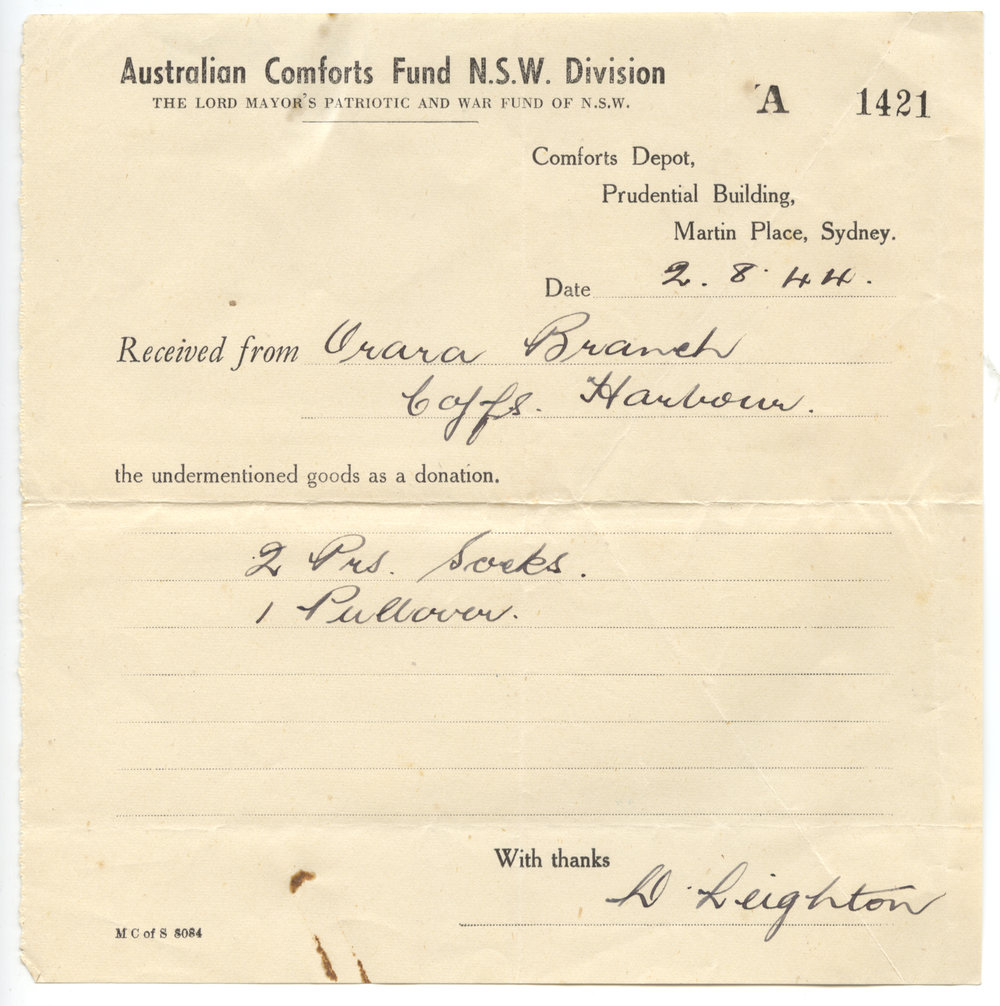 Australian Comforts Fund N.S.W. Division
THE LORD MAYOR'S PATRIOTIC AND WAR FUND OF N.S.W.
A 1421
Comforts Depot,
Prudential Building,
Martin Place, Sydney.
Date 2.8.44.
Received from Orara Branch
Coffs. Harbour.
the undermentioned goods as a donation.
2 Prs. Socks.
1 Pullover.
With thanks
D. Leighton
M C of S 8084